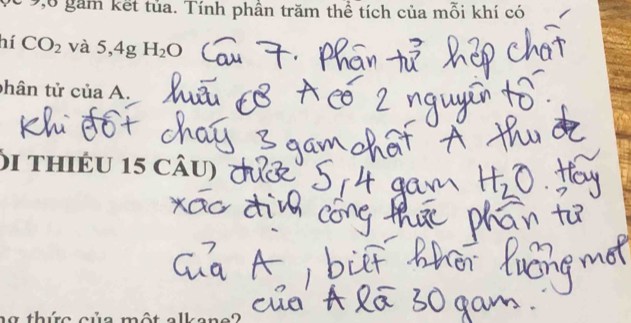 9,6 gam kết tủa. Tính phần trăm thể tích của mỗi khí có
hí CO₂ và 5,4g H₂O
Câu 7. Phân tử hợp chất
phân tử của A.
hữu cơ A có 2 nguyên tố.
Khi đốt cháy 3 gam chất A thu
ỐI THIỂU 15 CÂU)
được 5,4 gam H₂O. Hãy
xác định công thức phân tử
của A, biết khối lượng mol
của A là 30 gam.
ng thức của một alkane?